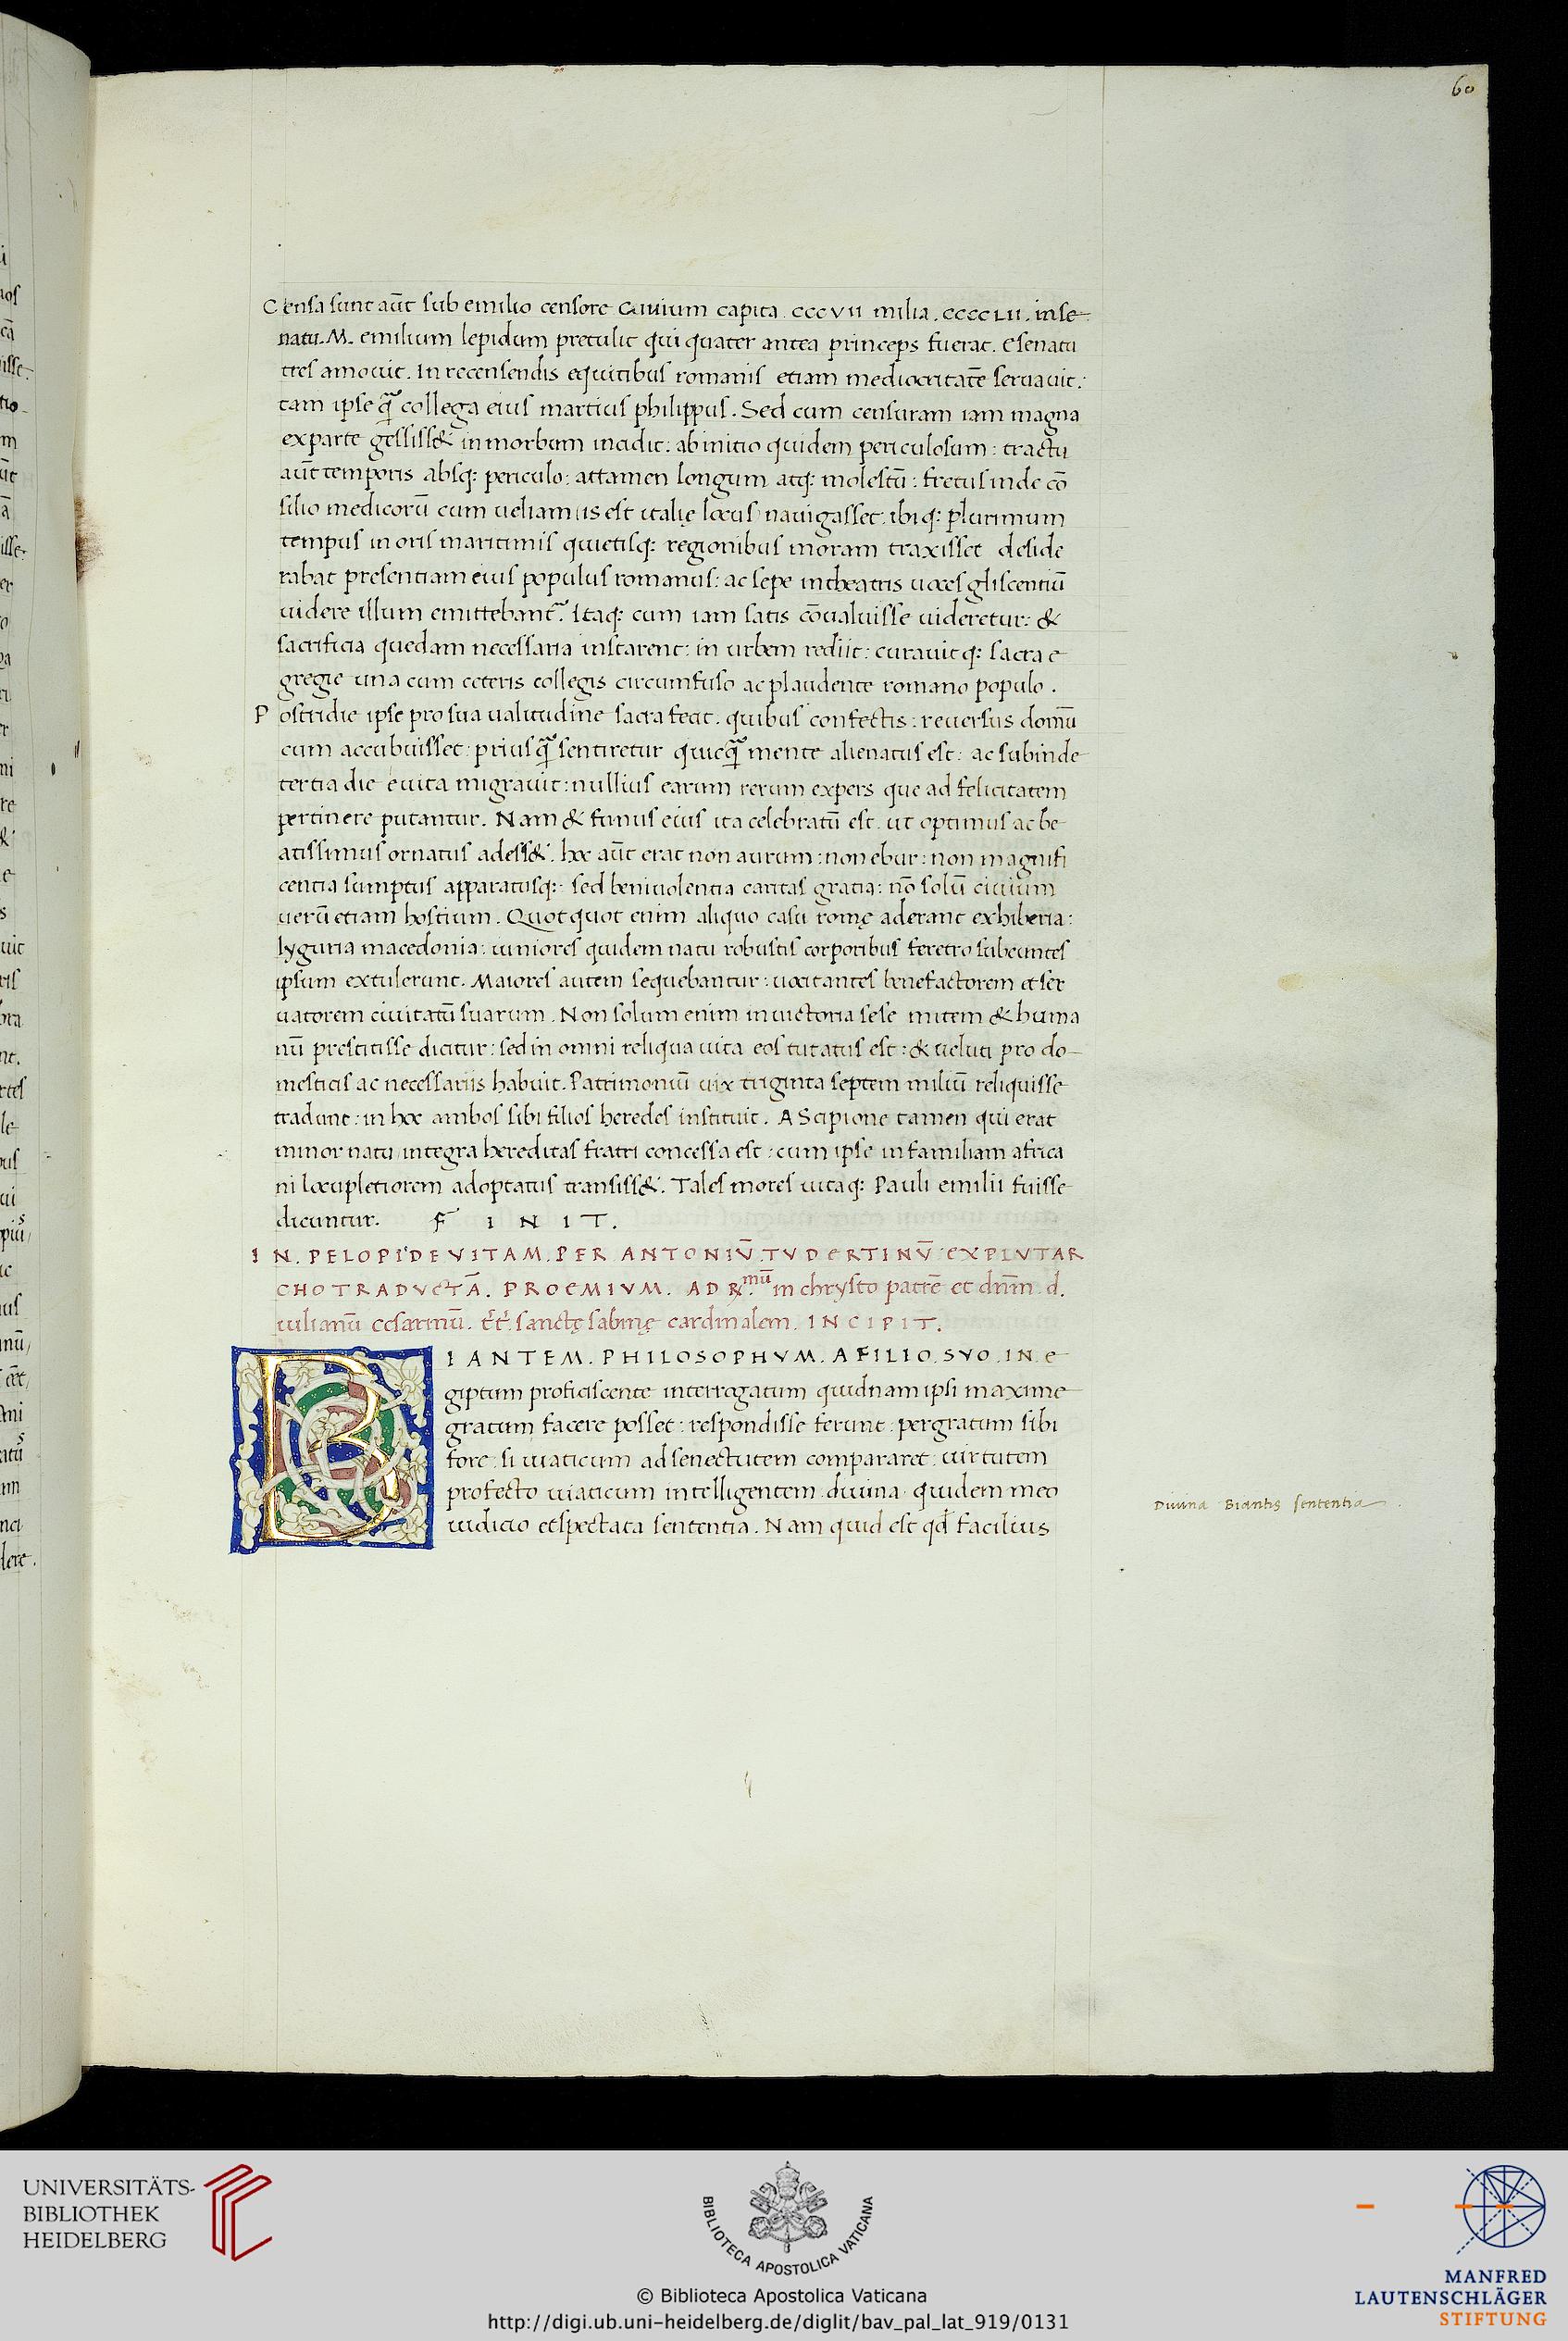 60
Censa sunt aūt sub emilio censore Ciuium capita . cccvii milia . cccclii . in se-
natu. M. emilium lepidum pretulit qui quater antea princeps fuerat. e senatu
tres amouit. In recensendis equitibus romanis etiam mediocritatē seruauit:
tam ipse q̃ collega eius martius philippus. Sed cum censuram iam magna
ex parte gessiss& in morbum incidit: ab initio quidem periculosum: tractu
aūt temporis absq; periculo: attamen longum atq; molestū: fretus inde cō
silio medicorū cum ueliam is est italię locus nauigasset. ibiq; plurimum
tempus in oris maritimis quietisq; regionibus moram traxisset deside
rabat presentiam eius populus romanus: ac sepe in theatris uoces gliscentiū
uidere illum emittebant᷑. Itaq; cum iam satis cōualuisse uideretur: &
sacrificia quedam necessaria instarent: in urbem rediit: curauitq; sacra e
gregie una cum ceteris collegis circumfuso ac plaudente romano populo .
Postridie ipse pro sua ualitudine sacra fecit. quibus confectis: reuersus domū
cum accubuisset: priusq̃ sentiretur quicq̃ mente alienatus est: ac subinde
tertia die e uita migrauit: nullius earum rerum expers que ad felicitatem
pertinere putantur. Nam & funus eius ita celebratū est. ut optimus ac be
atissimus ornatus adess&. hoc aūt erat non aurum: non ebur: non magnifi
centia sumptus apparatusq;: sed beniuolentia caritas gratia: nō solū ciuium
uerū etiam hostium. Quotquot enim aliquo casu romę aderant ex hiberia:
lyguria macedonia: iuniores quidem natu robustis corporibus feretro subeuntes
ipsum extulerunt. Maiores autem sequebantur: uocitantes benefactorem et ser
uatorem ciuitatū suarum. Non solum enim in uictoria sese mitem & huma
nū prestitisse dicitur: sed in omni reliqua uita eos tutatus est: & ueluti pro do-
mesticis ac necessariis habuit. Patrimoniū uix triginta septem miliū reliquisse
tradunt: in hoc ambos sibi filios heredes instituit. A Scipione tamen qui erat
minor natu integra hereditas fratri concessa est: cum ipse in familiam africa
ni locupletiorem adoptatus transiss&. Tales mores uitaq; Pauli emilii fuisse
dicuntur. F I N I T.
IN. PELOPIDE VITAM. PER ANTONIV̄. TVDERTINV̄ EX PLVTAR
CHO TRADVCTĀ. PROEMIVM. AD R.mū in chrysto patrē et dn̄m. d.
iulianū cesarinū. tt̄. sanctę sabinę cardinalem. INCIPIT.
BIANTEM. PHILOSOPHVM. A FILIO. SVO. IN. e
giptum proficiscente interrogatum quidnam ipsi maxime
gratum facere posset: respondisse ferunt: pergratum sibi
fore. si uiaticum ad senectutem compararet: uirtutem
profecto uiaticum intelligentem. diuina quidem meo
iudicio et spectata sententia. Nam quid est qđ facilius
Diuina Biantis sententia
UNIVERSITÄTS-
BIBLIOTHEK
HEIDELBERG
BIBLIOTECA APOSTOLICA VATICANA
© Biblioteca Apostolica Vaticana
http://digi.ub.uni-heidelberg.de/diglit/bav_pal_lat_919/0131
MANFRED
LAUTENSCHLÄGER
STIFTUNG